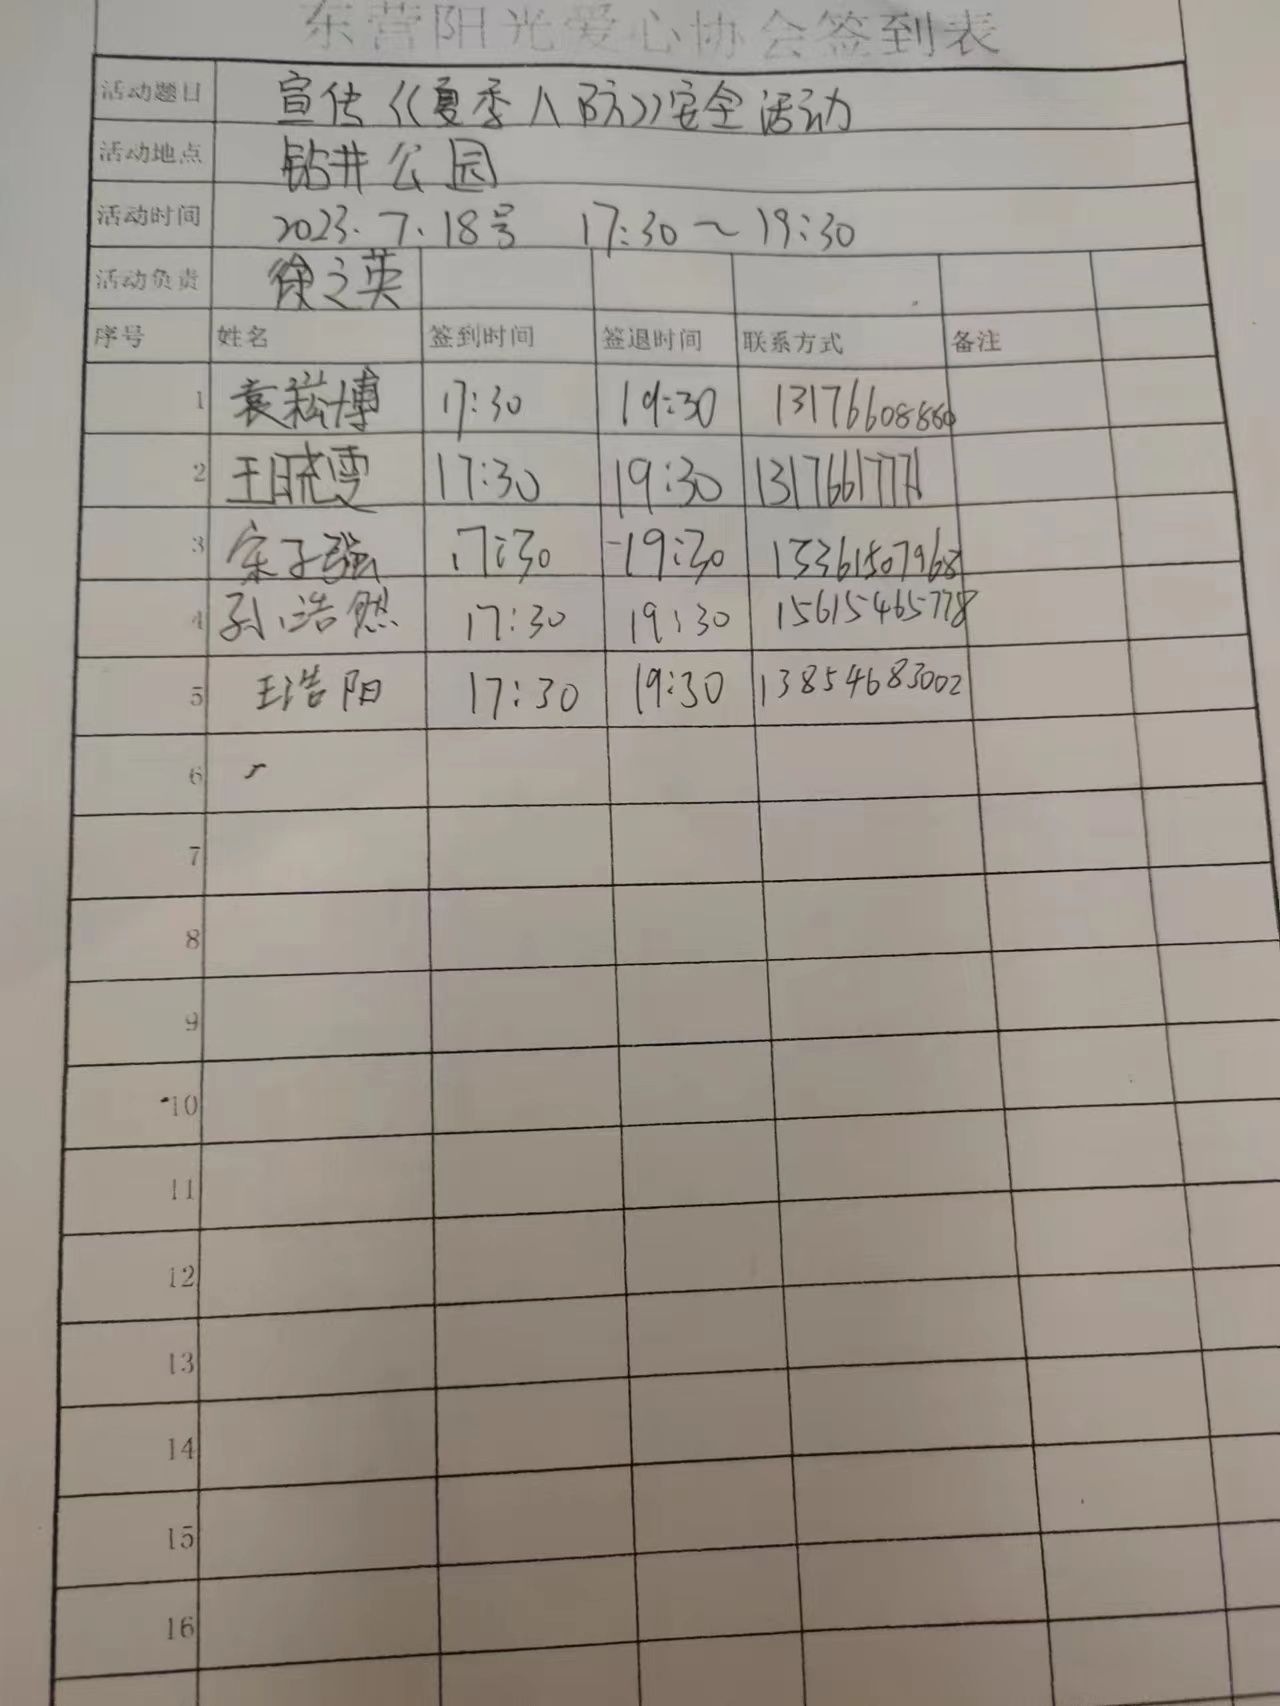 东营阳光爱心协会签到表
活动题目 宣传《夏季八防》安全活动
活动地点 钻井公园
活动时间 2023.7.18号 17:30～19:30
活动负责 徐之英
序号 姓名 签到时间 签退时间 联系方式 备注
1 袁崧博 17:30 19:30 13176608880
2 王晓雯 17:30 19:30
3 宋子强 17:30 19:30 13361507968
4 孙浩然 17:30 19:30 15615465778
5 王浩阳 17:30 19:30 13854683002
6
7
8
9
10
11
12
13
14
15
16